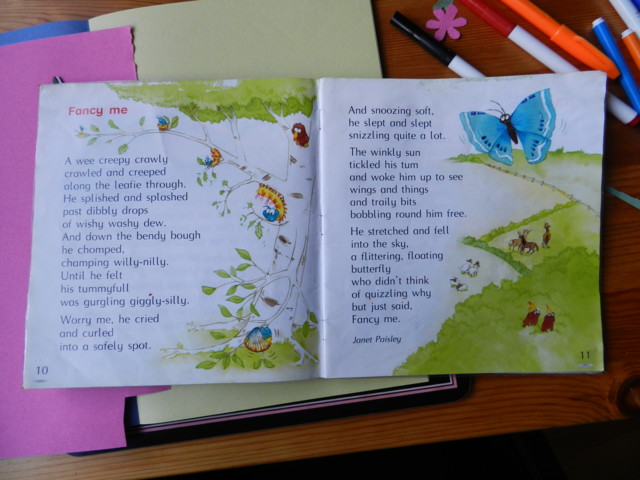 Fancy me
A wee creepy crawly
crawled and creeped
along the leafie through.
He splished and splashed
past dibbly drops
of wishy washy dew.
And down the bendy bough
he chomped,
champing willy-nilly.
Until he felt
his tummyfull
was gurgling giggly-silly.
Worry me, he cried
and curled
into a safely spot.
10
And snoozing soft,
he slept and slept
snizzling quite a lot.
The winkly sun
tickled his tum
and woke him up to see
wings and things
and traily bits
bobbling round him free.
He stretched and fell
into the sky,
a flittering, floating
butterfly
who didn't think
of quizzling why
but just said,
Fancy me.
Janet Paisley
11